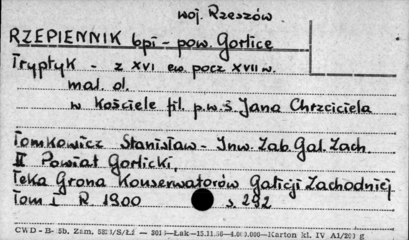 woj. Rzeszów
RZEPIENNIK bpi - pow. Gorlice
Tryptyk - z XVI ew. pocz XVII w.
mal. ol.
w kościele fil. p.w.ś Jana Chrzciciela
Tomkowicz Stanisław - Inw. Zab. Gal. Zach.
II Powiat Gorlicki,
Teka Grona Konserwatorów Galicji Zachodniej
Tom I R 1900 s. 292
CWD - B- Zam. Łak 4.000.000 Karton kl. IV A1/200 g